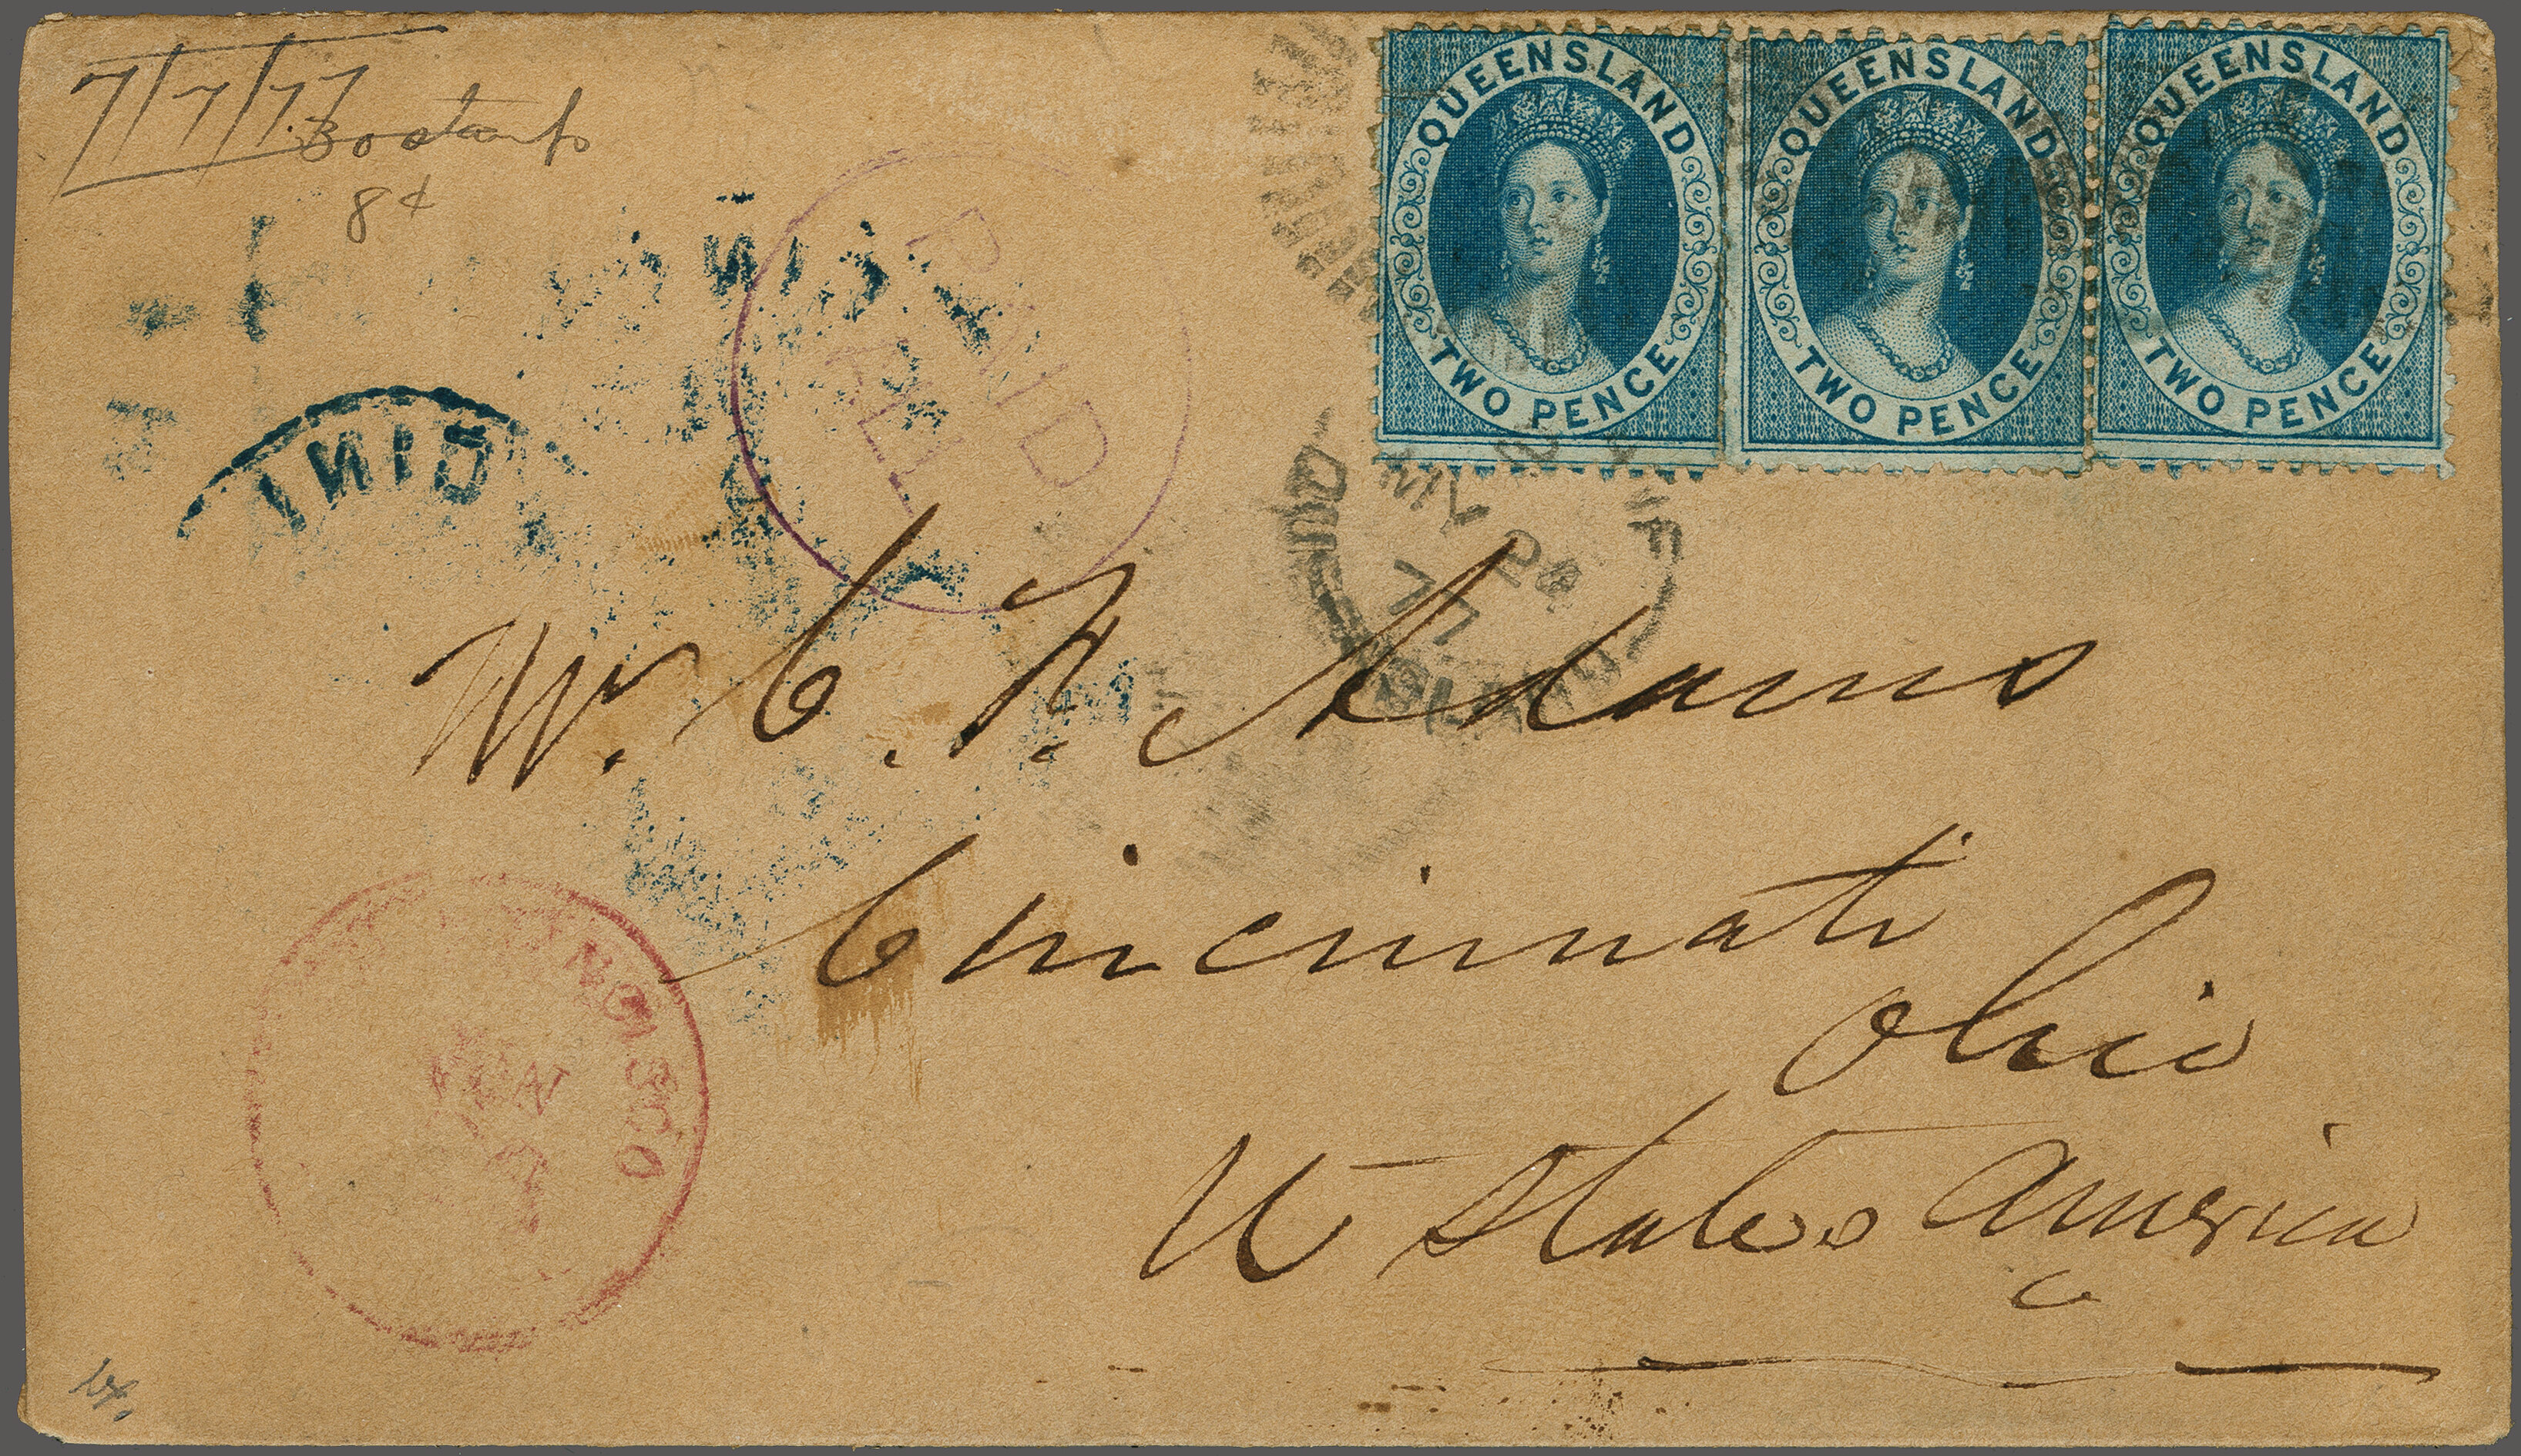 7/7/77
8¢
QUEENSLAND
TWO PENCE
QUEENSLAND
TWO PENCE
QUEENSLAND
TWO PENCE
PAID
ALL
77
Mr. C. F. Adams
Cincinnati
Ohio
U States America
NCISCO